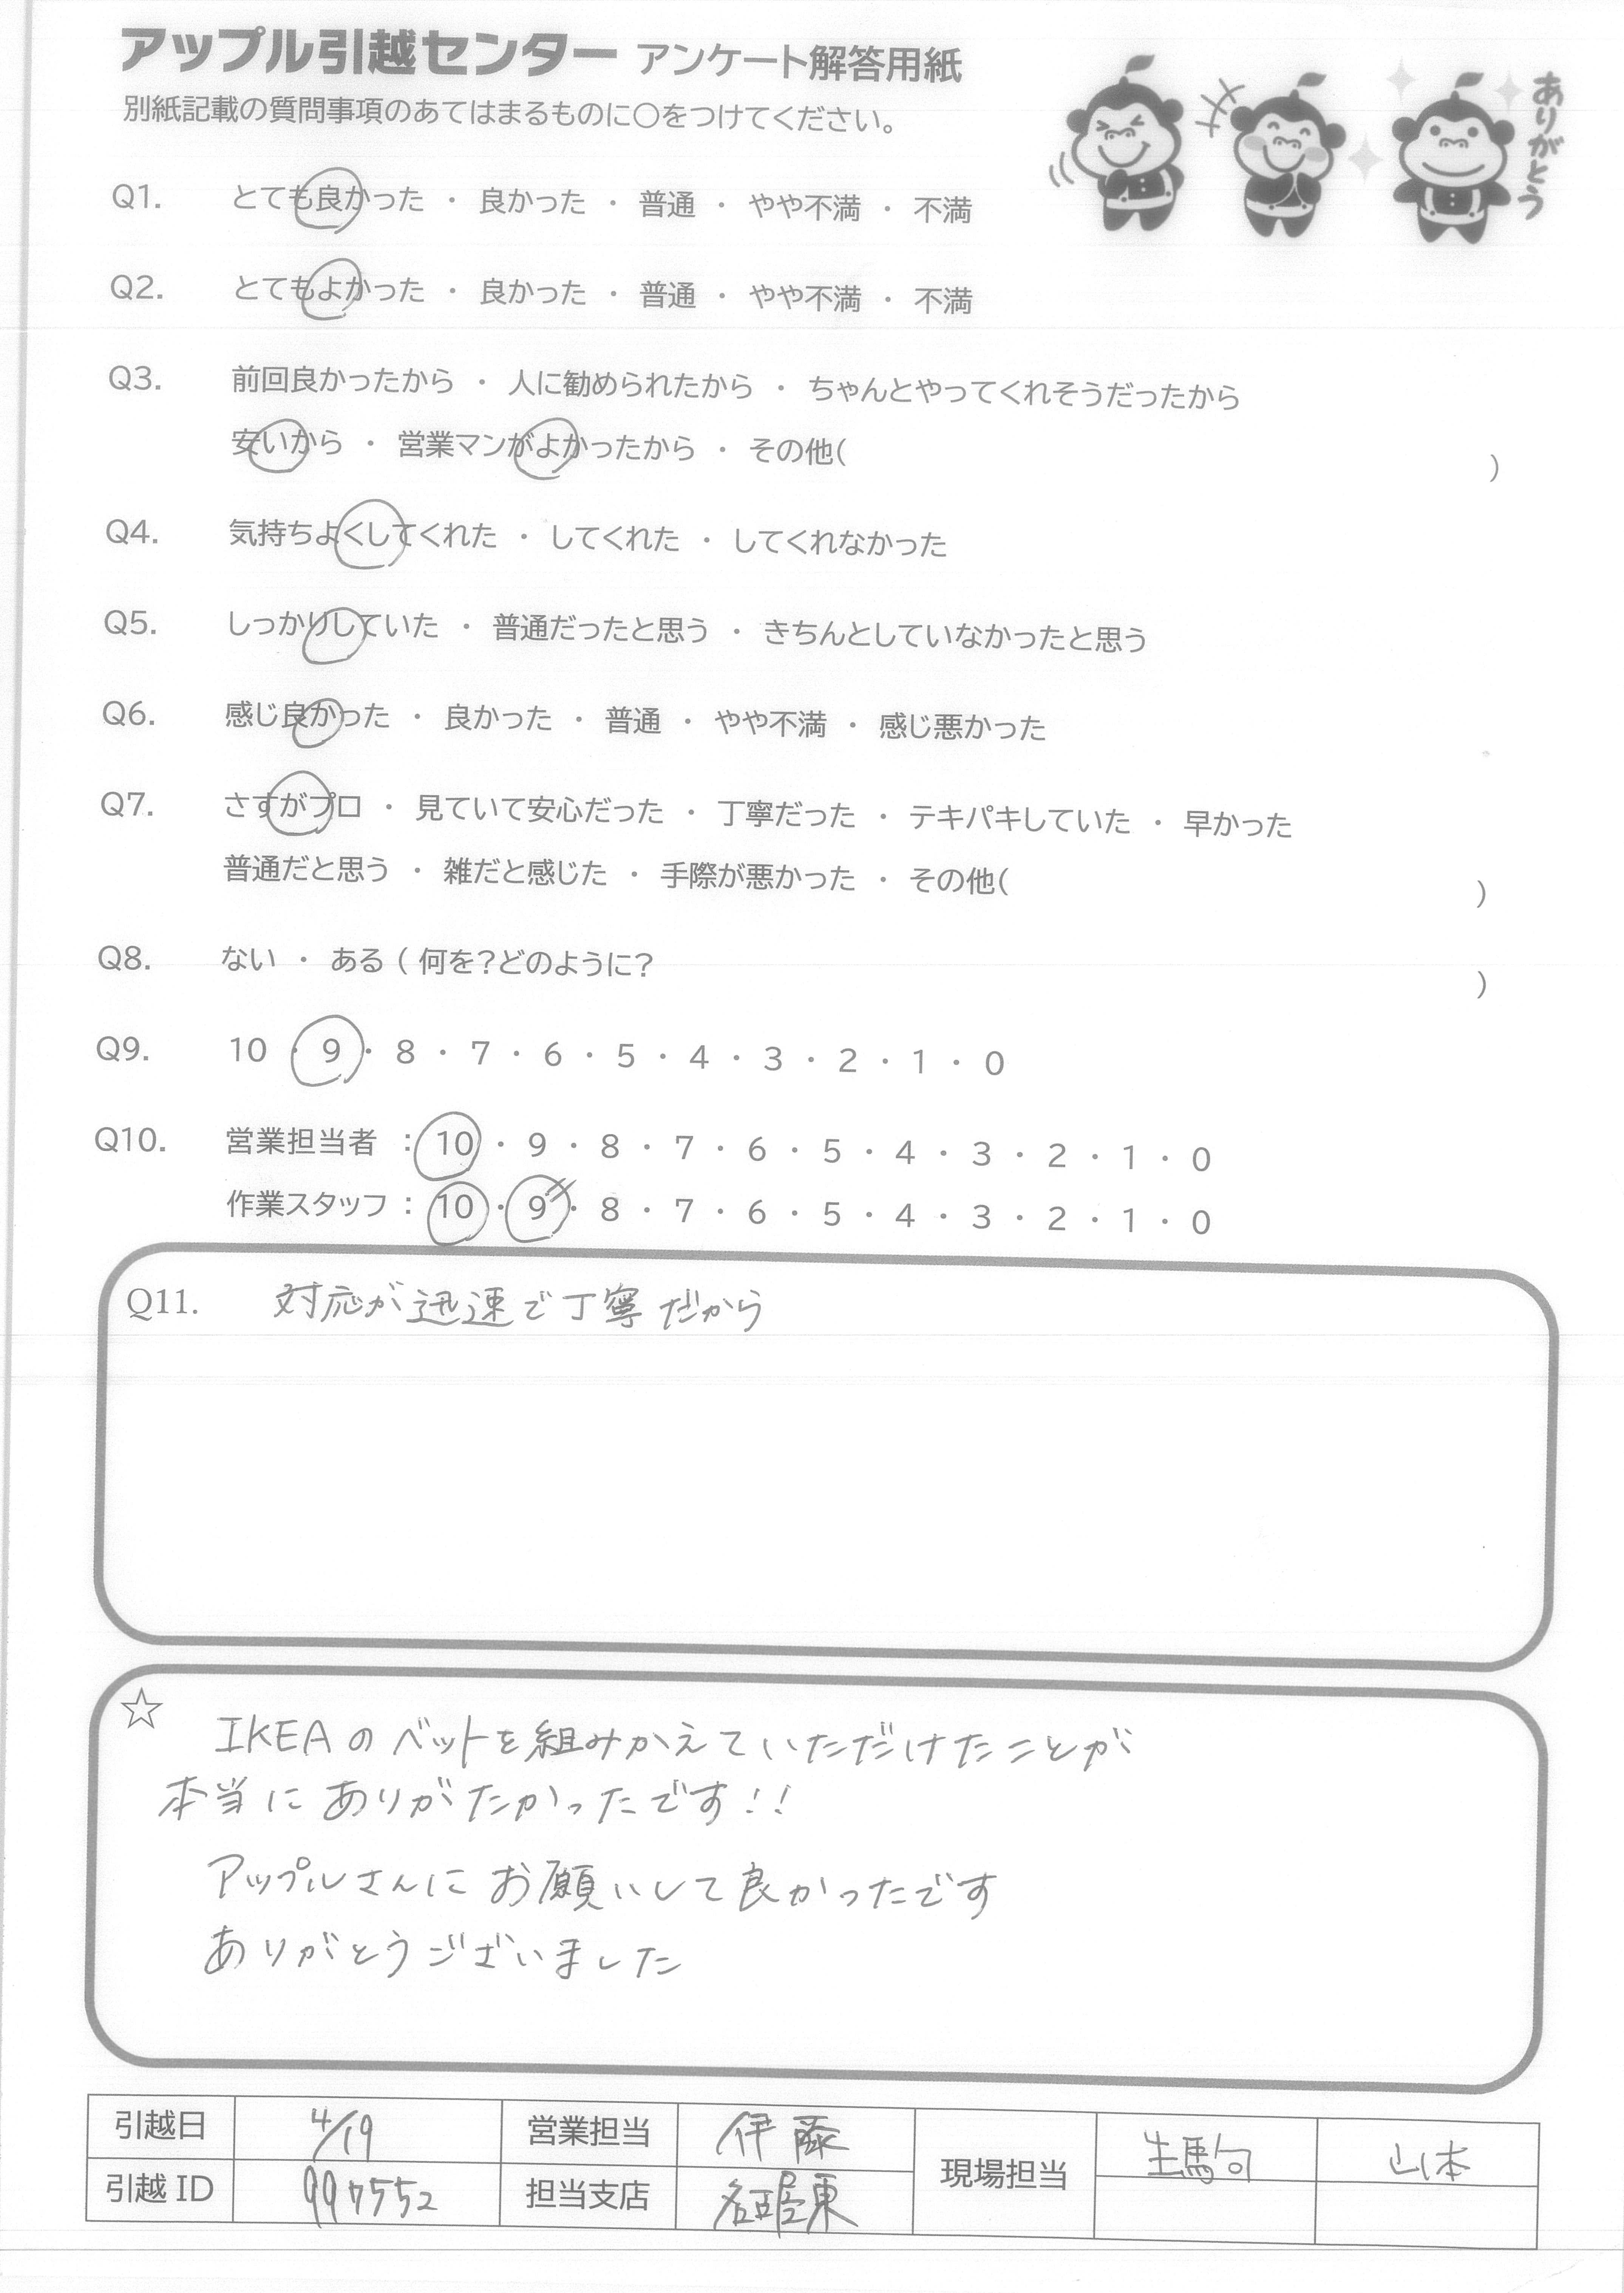 アップル引越センター アンケート解答用紙
別紙記載の質問事項のあてはまるものに〇をつけてください。
ありがとう
Q1. とても良かった ・ 良かった ・ 普通 ・ やや不満 ・ 不満
Q2. とてもよかった ・ 良かった ・ 普通 ・ やや不満 ・ 不満
Q3. 前回良かったから ・ 人に勧められたから ・ ちゃんとやってくれそうだったから
安いから ・ 営業マンがよかったから ・ その他( )
Q4. 気持ちよくしてくれた ・ してくれた ・ してくれなかった
Q5. しっかりしていた ・ 普通だったと思う ・ きちんとしていなかったと思う
Q6. 感じ良かった ・ 良かった ・ 普通 ・ やや不満 ・ 感じ悪かった
Q7. さすがプロ ・ 見ていて安心だった ・ 丁寧だった ・ テキパキしていた ・ 早かった
普通だと思う ・ 雑だと感じた ・ 手際が悪かった ・ その他( )
Q8. ない ・ ある ( 何を?どのように? )
Q9. 10 ・ 9 ・ 8 ・ 7 ・ 6 ・ 5 ・ 4 ・ 3 ・ 2 ・ 1 ・ 0
Q10. 営業担当者 : 10 ・ 9 ・ 8 ・ 7 ・ 6 ・ 5 ・ 4 ・ 3 ・ 2 ・ 1 ・ 0
作業スタッフ : 10 ・ 9 ・ 8 ・ 7 ・ 6 ・ 5 ・ 4 ・ 3 ・ 2 ・ 1 ・ 0
Q11. 対応が迅速で丁寧だから
☆ IKEAのベットを組みかえていただけたことが
本当にありがたかったです!!
アップルさんにお願いして良かったです
ありがとうございました
引越日 4/19 営業担当 伊藤 現場担当 生駒 山本
引越ID 997552 担当支店 名古屋東